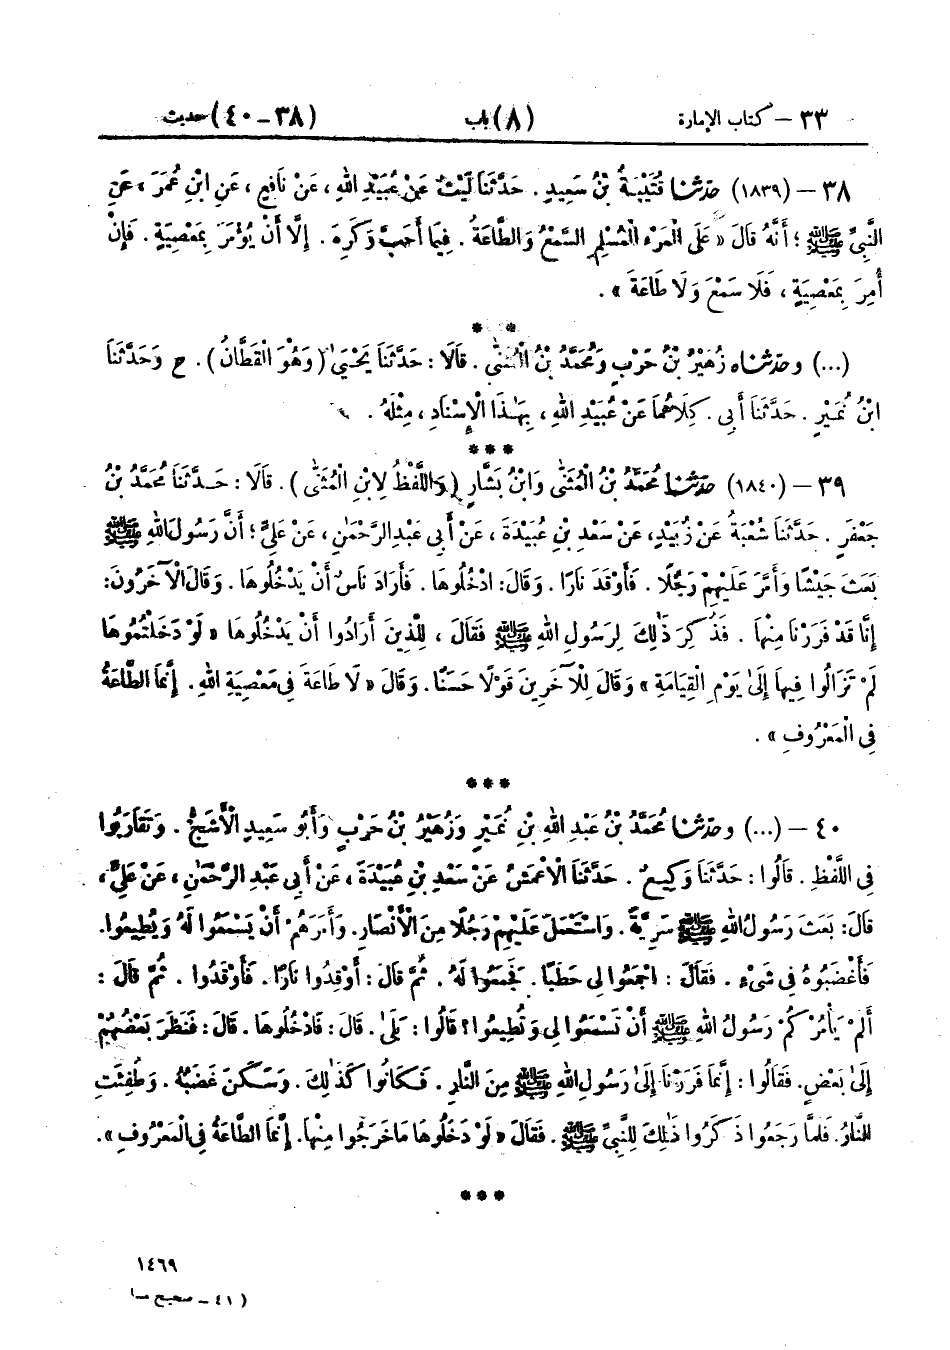 ٣٣ – كتاب الإمارة (٨) باب (٣٨ – ٤٠) حديث
٣٨ – (١٨٣٩) حَدَّثَنَا قُتَيْبَةُ بْنُ سَعِيدٍ . حَدَّثَنَا لَيْثٌ عَنْ عُبَيْدِ اللهِ ، عَنْ نَافِعٍ ، عَنِ ابْنِ عُمَرَ ، عَنِ
النَّبِيِّ ﷺ ؛ أَنَّهُ قَالَ « عَلَى الْمَرْءِ الْمُسْلِمِ السَّمْعُ وَالطَّاعَةُ . فِيمَا أَحَبَّ وَكَرِهَ . إِلَّا أَنْ يُؤْمَرَ بِمَعْصِيَةٍ . فَإِنْ
أُمِرَ بِمَعْصِيَةٍ ، فَلَا سَمْعَ وَلَا طَاعَةَ » .
* *
(...) وحَدَّثَنَاه زُهَيْرُ بْنُ حَرْبٍ وَمُحَمَّدُ بْنُ الْمُثَنَّى . قَالَا : حَدَّثَنَا يَحْيَىٰ ( وَهُوَ الْقَطَّانُ ) . ح وَحَدَّثَنَا
ابْنُ نُمَيْرٍ . حَدَّثَنَا أَبِي . كِلَاهُمَا عَنْ عُبَيْدِ اللهِ ، بِهَٰذَا الْإِسْنَادِ ، مِثْلَهُ .
***
٣٩ – (١٨٤٠) حَدَّثَنَا مُحَمَّدُ بْنُ الْمُثَنَّىٰ وَابْنُ بَشَّارٍ ( وَاللَّفْظُ لِابْنِ الْمُثَنَّىٰ ) . قَالَا : حَدَّثَنَا مُحَمَّدُ بْنُ
جَعْفَرٍ . حَدَّثَنَا شُعْبَةُ عَنْ زُبَيْدٍ، عَنْ سَعْدِ بْنِ عُبَيْدَةَ ، عَنْ أَبِي عَبْدِ الرَّحْمَٰنِ ، عَنْ عَلِيٍّ ؛ أَنَّ رَسُولَ اللهِ ﷺ
بَعَثَ جَيْشًا وَأَمَّرَ عَلَيْهِمْ رَجُلًا . فَأَوْقَدَ نَارًا . وَقَالَ: ادْخُلُوهَا . فَأَرَادَ نَاسٌ أَنْ يَدْخُلُوهَا . وَقَالَ الْآخَرُونَ:
إِنَّا قَدْ فَرَرْنَا مِنْهَا . فَذُكِرَ ذَٰلِكَ لِرَسُولِ اللهِ ﷺ فَقَالَ ، لِلَّذِينَ أَرَادُوا أَنْ يَدْخُلُوهَا « لَوْ دَخَلْتُمُوهَا
لَمْ تَزَالُوا فِيهَا إِلَىٰ يَوْمِ الْقِيَامَةِ » وَقَالَ لِلْآخَرِينَ قَوْلًا حَسَنًا. وَقَالَ « لَا طَاعَةَ فِي مَعْصِيَةِ اللهِ . إِنَّمَا الطَّاعَةُ
فِي الْمَعْرُوفِ » .
***
٤٠ – (...) وحَدَّثَنَا مُحَمَّدُ بْنُ عَبْدِ اللهِ بْنِ نُمَيْرٍ وَزُهَيْرُ بْنُ حَرْبٍ وَأَبُو سَعِيدٍ الْأَشَجُّ . وَتَقَارَبُوا
فِي اللَّفْظِ . قَالُوا : حَدَّثَنَا وَكِيعٌ . حَدَّثَنَا الْأَعْمَشُ عَنْ سَعْدِ بْنِ عُبَيْدَةَ ، عَنْ أَبِي عَبْدِ الرَّحْمَٰنِ ، عَنْ عَلِيٍّ ،
قَالَ: بَعَثَ رَسُولُ اللهِ ﷺ سَرِيَّةً . وَاسْتَعْمَلَ عَلَيْهِمْ رَجُلًا مِنَ الْأَنْصَارِ. وَأَمَرَهُمْ أَنْ يَسْمَعُوا لَهُ وَيُطِيعُوا.
فَأَغْضَبُوهُ فِي شَيْءٍ . فَقَالَ : اجْمَعُوا لِي حَطَبًا . فَجَمَعُوا لَهُ . ثُمَّ قَالَ : أَوْقِدُوا نَارًا . فَأَوْقَدُوا . ثُمَّ قَالَ :
أَلَمْ يَأْمُرْكُمْ رَسُولُ اللهِ ﷺ أَنْ تَسْمَعُوا لِي وَتُطِيعُوا ؟ قَالُوا : بَلَىٰ . قَالَ : فَادْخُلُوهَا . قَالَ : فَنَظَرَ بَعْضُهُمْ
إِلَىٰ بَعْضٍ. فَقَالُوا : إِنَّمَا فَرَرْنَا إِلَىٰ رَسُولِ اللهِ ﷺ مِنَ النَّارِ . فَكَانُوا كَذَٰلِكَ . وَسَكَنَ غَضَبُهُ . وَطُفِئَتِ
النَّارُ. فَلَمَّا رَجَعُوا ذَكَرُوا ذَٰلِكَ لِلنَّبِيِّ ﷺ . فَقَالَ « لَوْ دَخَلُوهَا مَا خَرَجُوا مِنْهَا. إِنَّمَا الطَّاعَةُ فِي الْمَعْرُوفِ ».
***
١٤٦٩
( ٤١ – صحيح مسـ